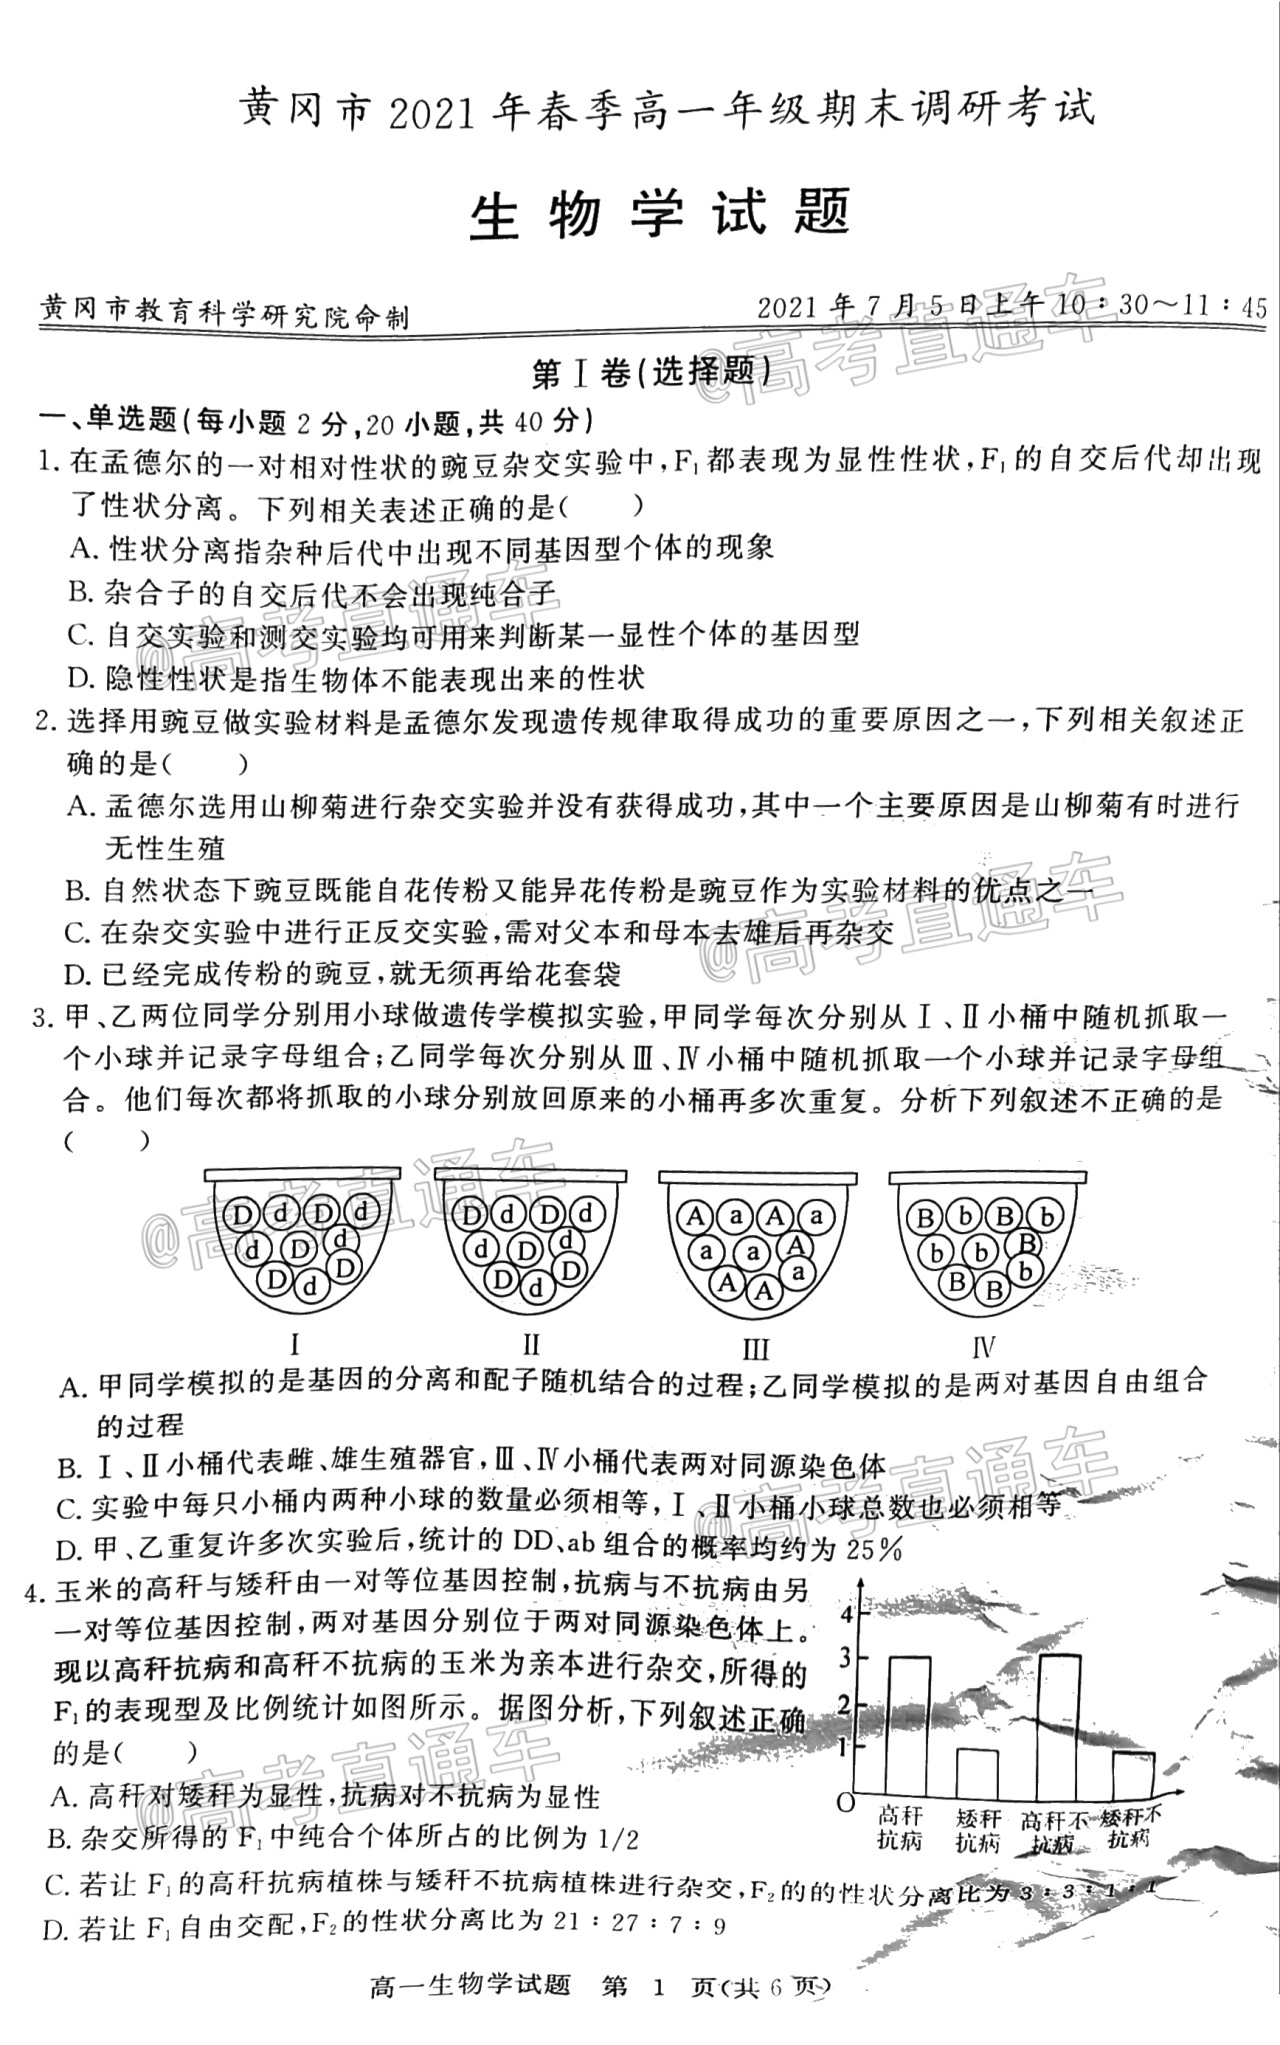 黄冈市2021年春季高一年级期末调研考试
生物学试题
黄冈市教育科学研究院命制 2021年7月5日上午10:30~11:45
第Ⅰ卷(选择题)
一、单选题(每小题2分,20小题,共40分)
1. 在孟德尔的一对相对性状的豌豆杂交实验中,F₁都表现为显性性状,F₁的自交后代却出现
了性状分离。下列相关表述正确的是(  )
A. 性状分离指杂种后代中出现不同基因型个体的现象
B. 杂合子的自交后代不会出现纯合子
C. 自交实验和测交实验均可用来判断某一显性个体的基因型
D. 隐性性状是指生物体不能表现出来的性状
2. 选择用豌豆做实验材料是孟德尔发现遗传规律取得成功的重要原因之一,下列相关叙述正
确的是(  )
A. 孟德尔选用山柳菊进行杂交实验并没有获得成功,其中一个主要原因是山柳菊有时进行
无性生殖
B. 自然状态下豌豆既能自花传粉又能异花传粉是豌豆作为实验材料的优点之一
C. 在杂交实验中进行正反交实验,需对父本和母本去雄后再杂交
D. 已经完成传粉的豌豆,就无须再给花套袋
3. 甲、乙两位同学分别用小球做遗传学模拟实验,甲同学每次分别从Ⅰ、Ⅱ小桶中随机抓取一
个小球并记录字母组合;乙同学每次分别从Ⅲ、Ⅳ小桶中随机抓取一个小球并记录字母组
合。他们每次都将抓取的小球分别放回原来的小桶再多次重复。分析下列叙述不正确的是
(  )
D d D d D d D d A a A a B b B b
d D d d D d a a A b b B
D d D D d D A A a B B b
Ⅰ Ⅱ Ⅲ Ⅳ
A. 甲同学模拟的是基因的分离和配子随机结合的过程;乙同学模拟的是两对基因自由组合
的过程
B. Ⅰ、Ⅱ小桶代表雌、雄生殖器官,Ⅲ、Ⅳ小桶代表两对同源染色体
C. 实验中每只小桶内两种小球的数量必须相等,Ⅰ、Ⅱ小桶小球总数也必须相等
D. 甲、乙重复许多次实验后,统计的DD、ab组合的概率均约为25%
4. 玉米的高秆与矮秆由一对等位基因控制,抗病与不抗病由另
一对等位基因控制,两对基因分别位于两对同源染色体上。
现以高秆抗病和高秆不抗病的玉米为亲本进行杂交,所得的
F₁的表现型及比例统计如图所示。据图分析,下列叙述正确
的是(  )
A. 高秆对矮秆为显性,抗病对不抗病为显性
B. 杂交所得的F₁中纯合个体所占的比例为1/2
4
3
2
1
O
高秆 矮秆 高秆不 矮秆不
抗病 抗病 抗病 抗病
C. 若让F₁的高秆抗病植株与矮秆不抗病植株进行杂交,F₂的的性状分离比为3:3:1:1
D. 若让F₁自由交配,F₂的性状分离比为21:27:7:9
高一生物学试题 第1页(共6页)
@高考直通车
@高考直通车
@高考直通车
@高考直通车
@高考直通车
@高考直通车